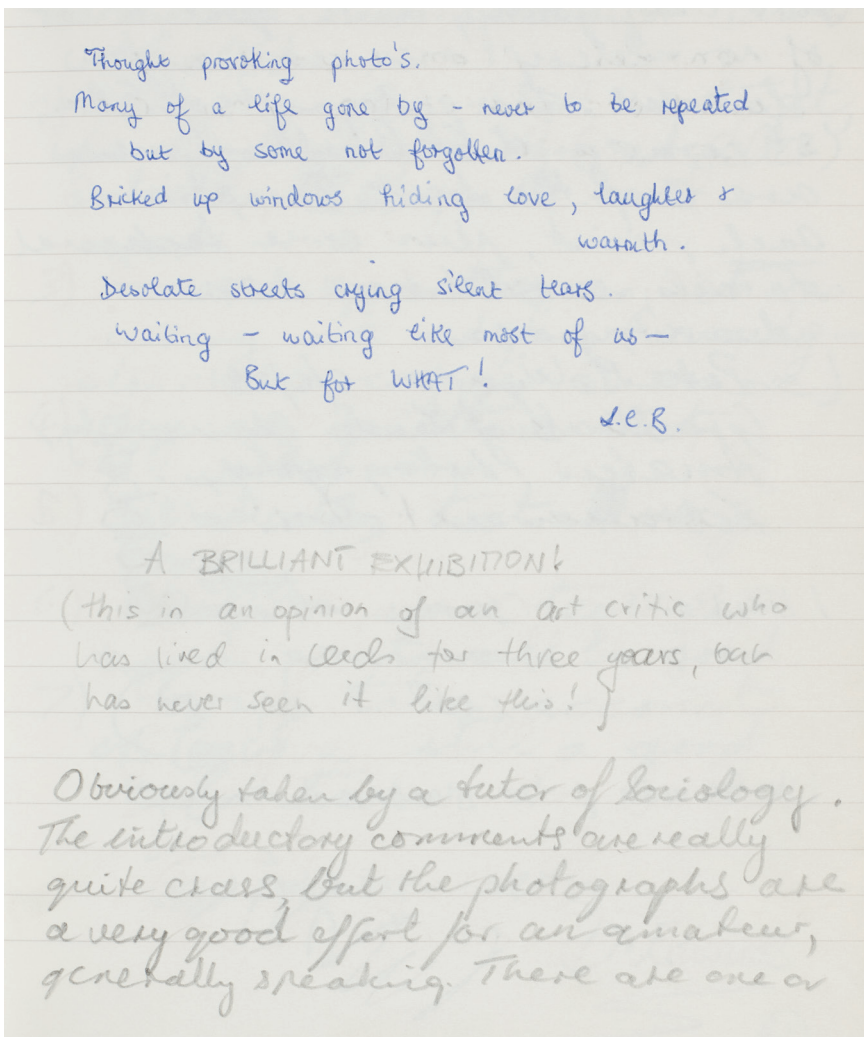 Thought provoking photo's.
Many of a life gone by - never to be repeated
but by some not forgotten.
Bricked up windows hiding love, laughter &
warmth.
Desolate streets crying silent tears.
Waiting - waiting like most of us -
But for WHAT!
S.C.B.
A BRILLIANT EXHIBITION!
(this in an opinion of an art critic who
has lived in Leeds for three years, but
has never seen it like this!)
Obviously taken by a tutor of Sociology.
The introductory comments are really
quite crass, but the photographs are
a very good effort for an amateur,
generally speaking. There are one or